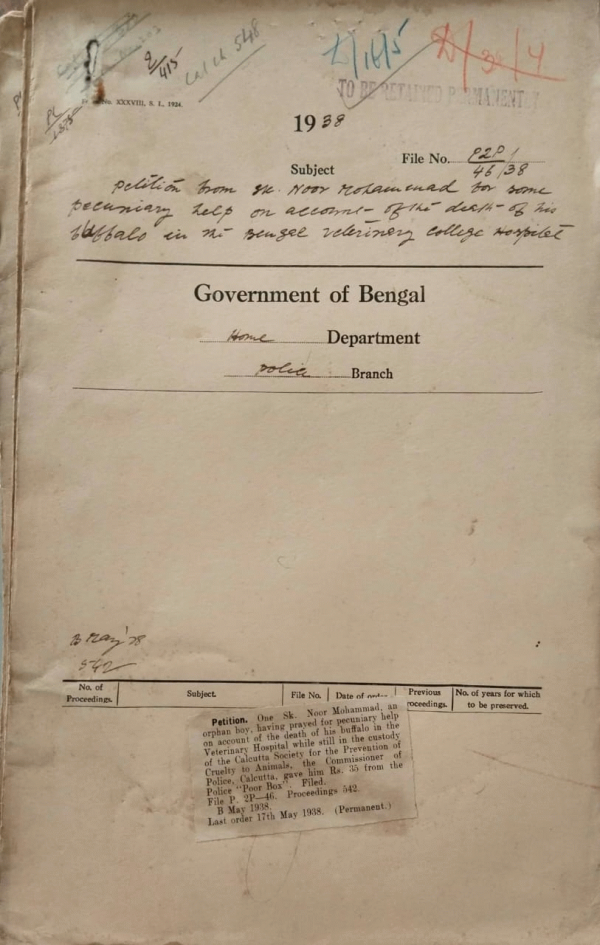 2/415
Catch 548
L/16/5
D/30/4
TO BE RETAINED PERMANENTLY
XXXVIII, S. L., 1924.
1938
File No. P2P/
46/38
Subject
Petition from Sk. Noor Mohammad for some
pecuniary help on account of the death of his
buffalo in the Bengal Veterinary College Hospital
Government of Bengal
Home Department
Police Branch
B May '38
542
No. of Proceedings. Subject. File No. Date of order Previous Proceedings. No. of years for which to be preserved.
Petition. One Sk. Noor Mohammad, an
orphan boy, having prayed for pecuniary help
on account of the death of his buffalo in the
Veterinary Hospital while still in the custody
of the Calcutta Society for the Prevention of
Cruelty to Animals, the Commissioner of
Police, Calcutta, gave him Rs. 35 from the
Police "Poor Box". Filed.
File P. 2P—46. Proceedings 542.
B May 1938.
Last order 17th May 1938. (Permanent.)